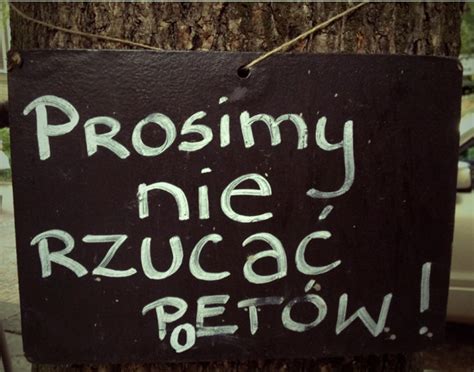 Prosimy
nie
rzucać
poetów!